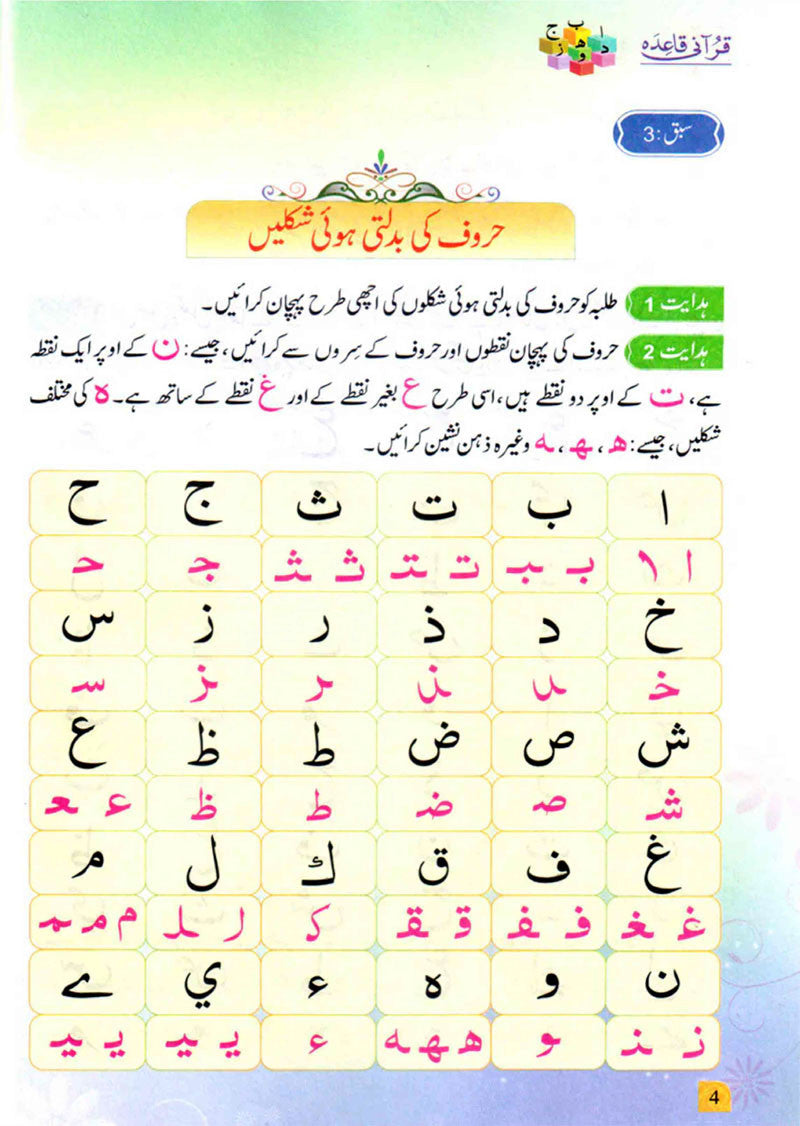 ا ب ج
د ھ ز
و
قرآنی قاعدہ
سبق : 3
حروف کی بدلتی ہوئی شکلیں
ہدایت 1 طلبہ کو حروف کی بدلتی ہوئی شکلوں کی اچھی طرح پہچان کرائیں۔
ہدایت 2 حروف کی پہچان نقطوں اور حروف کے سِروں سے کرائیں، جیسے: ن کے اوپر ایک نقطہ
ہے، ت کے اوپر دو نقطے ہیں، اسی طرح ع بغیر نقطے کے اور غ نقطے کے ساتھ ہے۔ ہ کی مختلف
شکلیں، جیسے: ھ، ـهـ، ـه وغیرہ ذہن نشین کرائیں۔
ا ب ت ث ج ح
ا ـا بـ ـبـ تـ ـتـ ثـ ـثـ جـ حـ
خ د ذ ر ز س
خـ ـد ـذ ـر ـز سـ
ش ص ض ط ظ ع
شـ صـ ضـ ط ظ عـ ـعـ
غ ف ق ك ل م
غـ ـغـ فـ ـفـ قـ ـقـ كـ لـ ـلـ م مـ ـمـ
ن و ه ء ي ے
نـ ـنـ ـو هـ ـهـ ـه ء يـ ـيـ يـ ـيـ
4